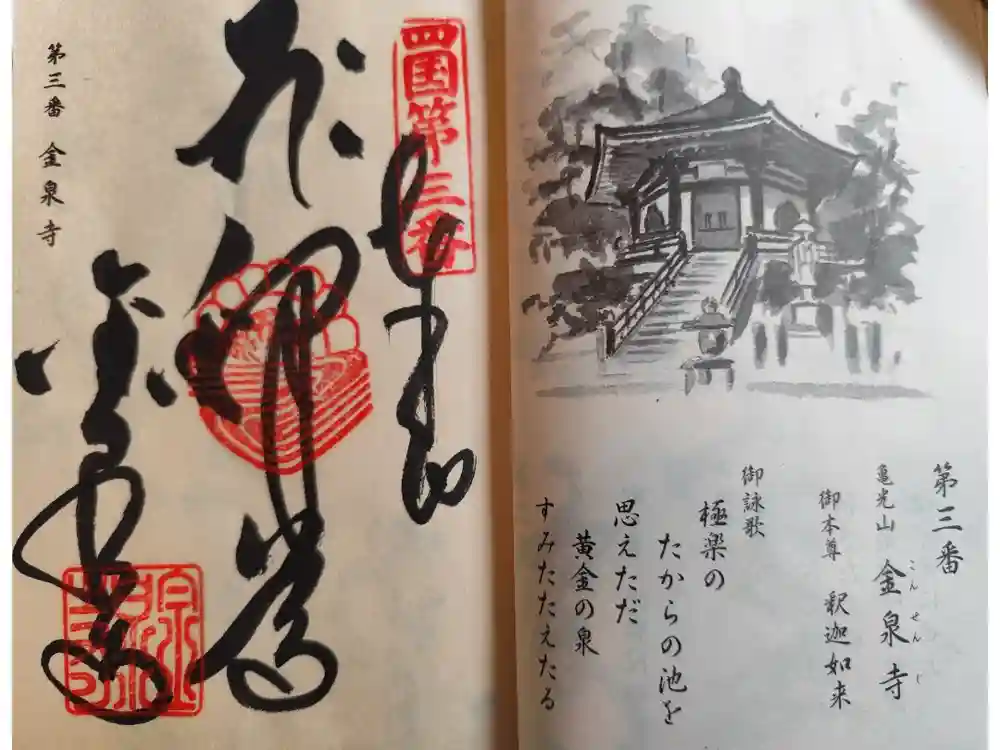 第三番
亀光山 金泉寺
こんせんじ
御本尊 釈迦如来
御詠歌
極楽の
たからの池を
思えただ
黄金の泉
すみたたえたる
四国第三番
奉
釈迦
金泉寺
第三番 金泉寺